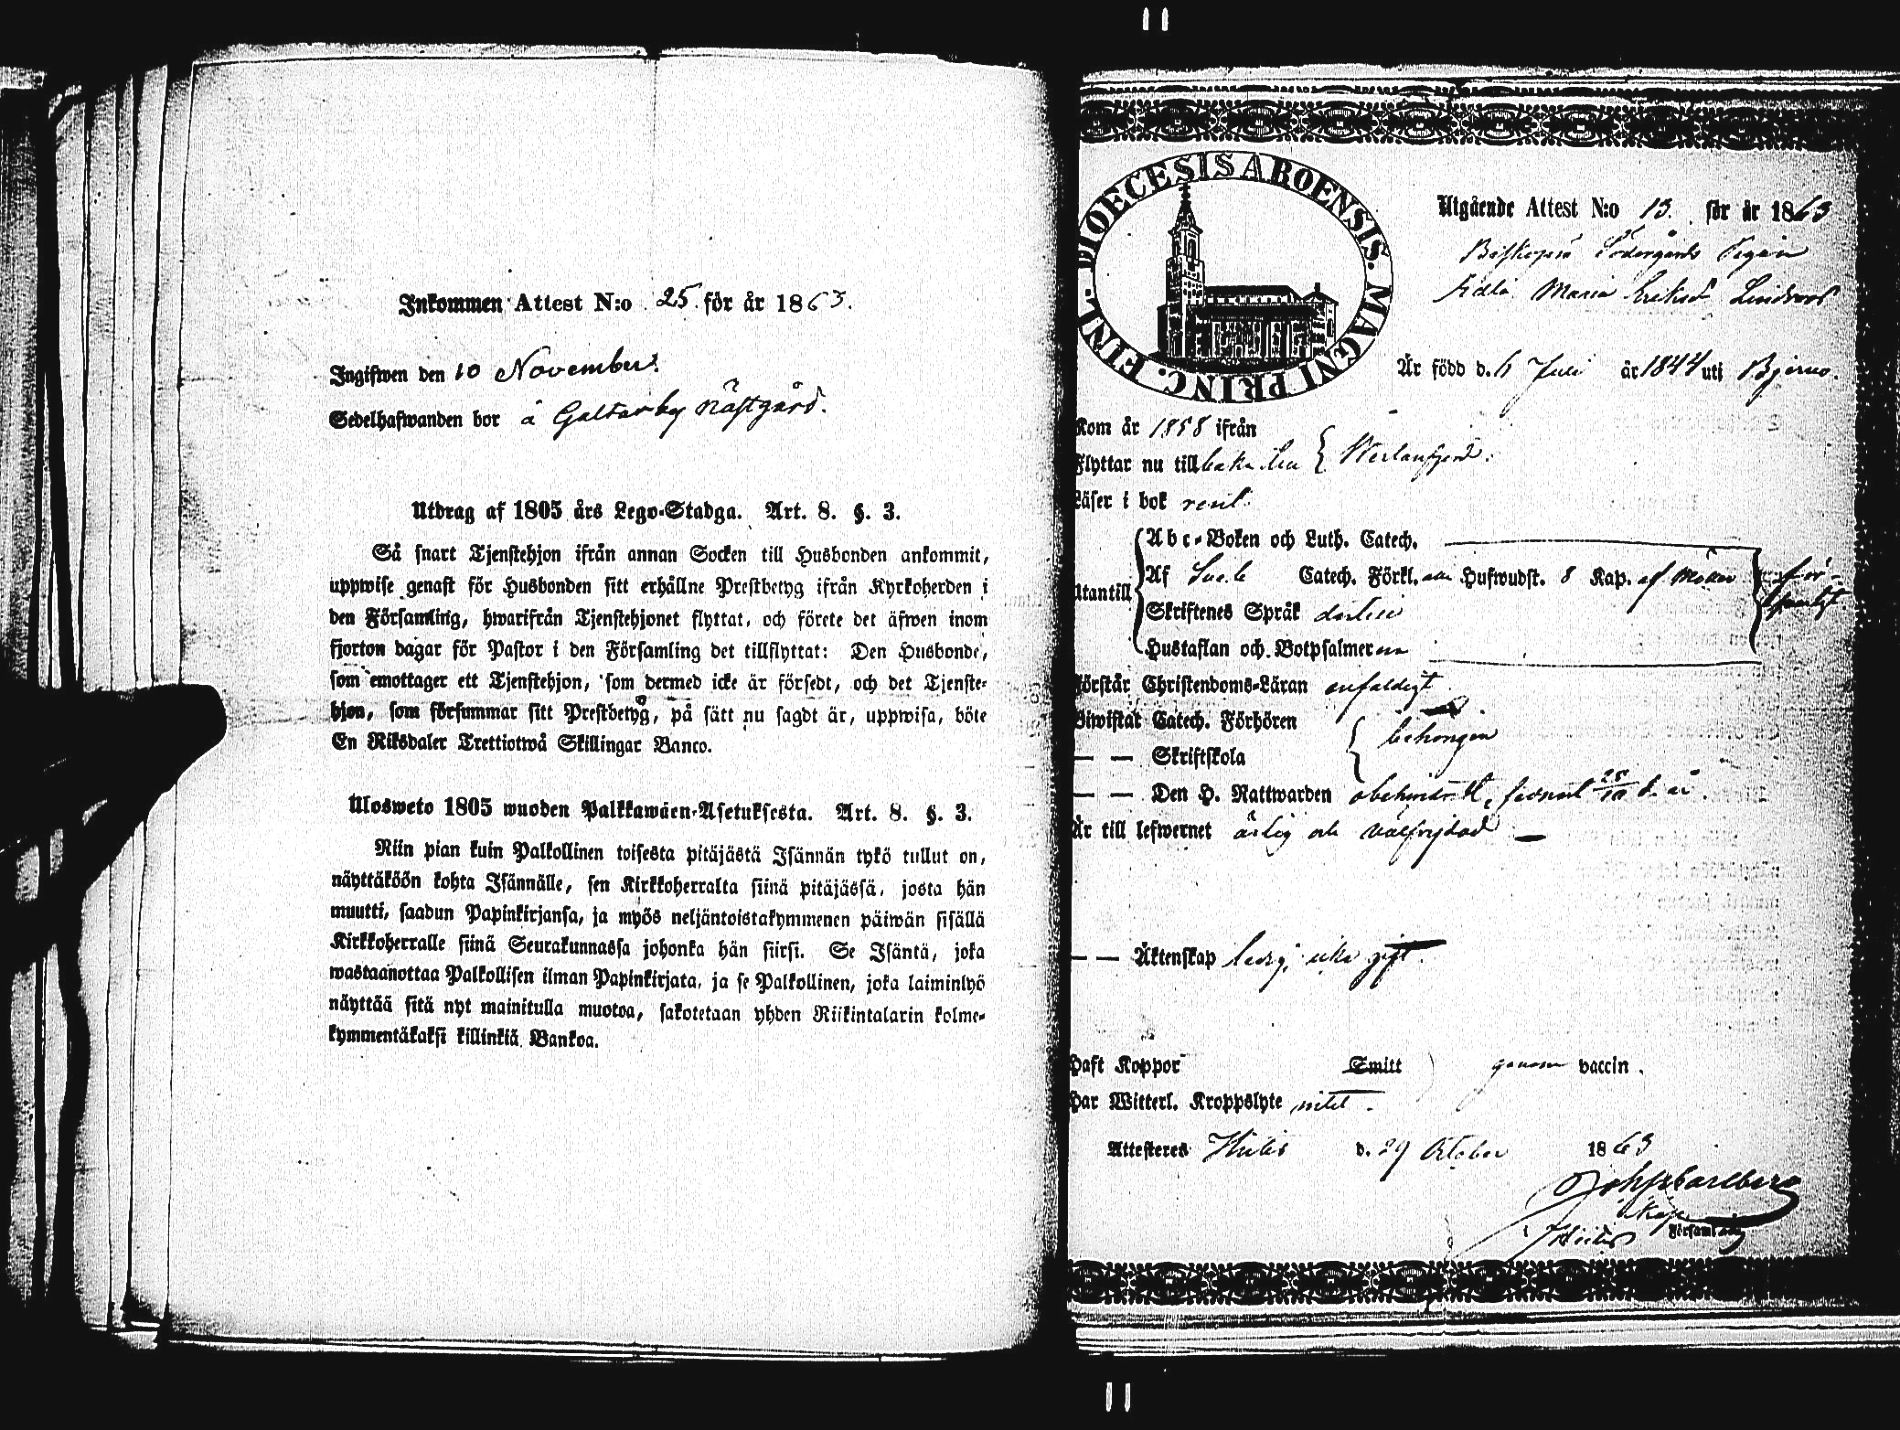 Inkommen Attest N:o 25. för år 1863.
Ingifwen den 10 November.
Sedelhafwanden bor å Galtarby Nästgård.
Utdrag af 1805 års Lego-Stadga. Art. 8. §. 3.
Så snart Tjenstehjon ifrån annan Socken till Husbonden ankommit,
uppwise genast för Husbonden sitt erhållne Prestbetyg ifrån Kyrkoherden i
den Församling, hwarifrån Tjenstehjonet flyttat, och förete det äfwen inom
fjorton dagar för Pastor i den Församling det tillflyttat: Den Husbonde,
som emottager ett Tjenstehjon, som dermed icke är försedt, och det Tjenste-
hjon, som försummar sitt Prestbetyg, på sätt nu sagdt är, uppwisa, böte
En Riksdaler Trettiotwå Skillingar Banco.
Ulosweto 1805 wuoden Palkkawäen-Asetuksesta. Art. 8. §. 3.
Niin pian kuin Palkollinen toisesta pitäjästä Isännän tykö tullut on,
näyttäköön kohta Isännälle, sen Kirkkoherralta siinä pitäjässä, josta hän
muutti, saadun Papinkirjansa, ja myös neljäntoistakymmenen päiwän sisällä
Kirkkoherralle siinä Seurakunnassa johonka hän siirsi. Se Isäntä, joka
wastaanottaa Palkollisen ilman Papinkirjata, ja se Palkollinen, joka laiminlyö
näyttää sitä nyt mainitulla muotoa, sakotetaan yhden Riikintalarin kolme-
kymmentäkaksi killinkiä Bankoa.
DIOECESIS ABOENSIS. MAGNI PRINC. FINL.
Utgående Attest N:o 13. för år 1863
Biskopsö Södergårds Pigan
Maria Lindroos
Är född d. 6 Juli år 1844 uti Bjerno.
Kom år 1858 ifrån
Flyttar nu tillbaka till
Läser i bok rent
Utantill
Abc-Boken och Luth. Catech.
Af Catech. Förkl. Hufwudst. 8 Kap. af
Skriftenes Språk
Hustaflan och Botpsalmerna
Förstår Christendoms-Läran enfaldigt
Biwistat Catech. Förhören
— — Skriftskola
behörigen
— — Den H. Nattwarden obehindradt, senast 25/10 d. år
Är till lefwernet ärlig och välfrejdad —
— — Äktenskap ledig, icke gift.
Haft Koppor Smitt genom vaccin.
Har Witterl. Kroppslyte intet.
Attesteras Hitis d. 29 October 1863
Joh. Carlberg
Kapl.
i Hitis Församling